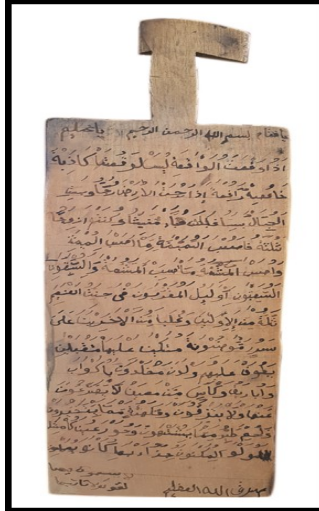 يا فتاح بسم الله الرحمن الرحيم يا عليم
اذا وقعت الواقعة ليس لوقعتها كاذبة
خافضة رافعة اذا رجت الارض رجا وبست
الجبال بسا فكانت هباء منبثا وكنتم ازوجا
ثلثة فاصحب الميمنة ما اصحب الميمنة
واصحب المشئمة ما اصحب المشئمة والسبقون
السبقون اوليك المقربون في جنت النعيم
ثلة من الاولين وقليل من الاخرين على
سرر موضونة متكين عليها متقبلين
يطوف عليهم ولدن مخلدون باكواب
واباريق وكاس من معين لا يصدعون
عنها ولا ينزفون وفكهة مما يتخيرون
ولحم طير مما يشتهون وحور عين كامثل
اللؤلو المكنون جزاء بما كانوا يعملو
يسمعون فيها
صدق الله العظيم لغوا ولا تاثيما